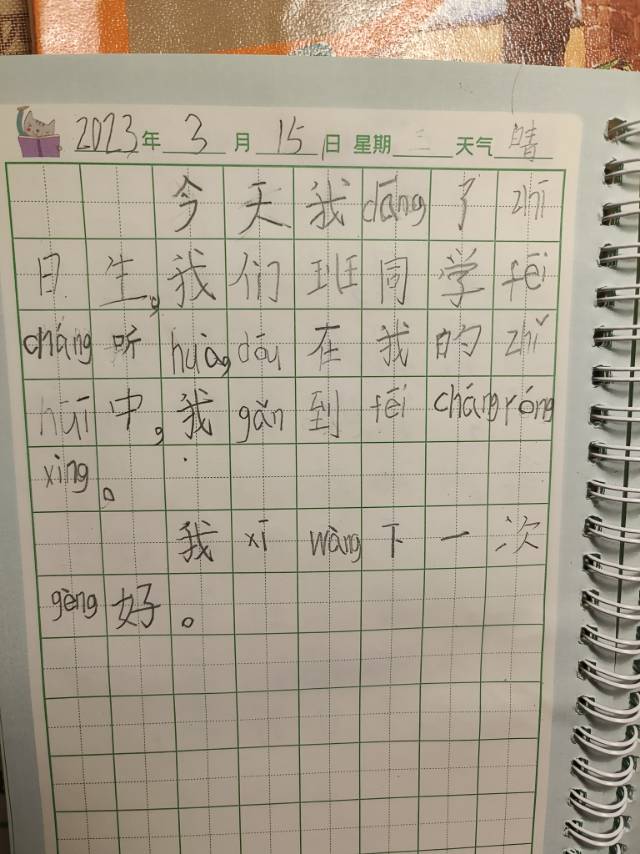 2023年3月15日 星期三 天气晴
今天我dāng了zhī
日生,我们班同学fēi
cháng听huà,dōu在我的zhǐ
huī中,我gǎn到fēi cháng róng
xìng。
我xī wàng下一次
gèng好。